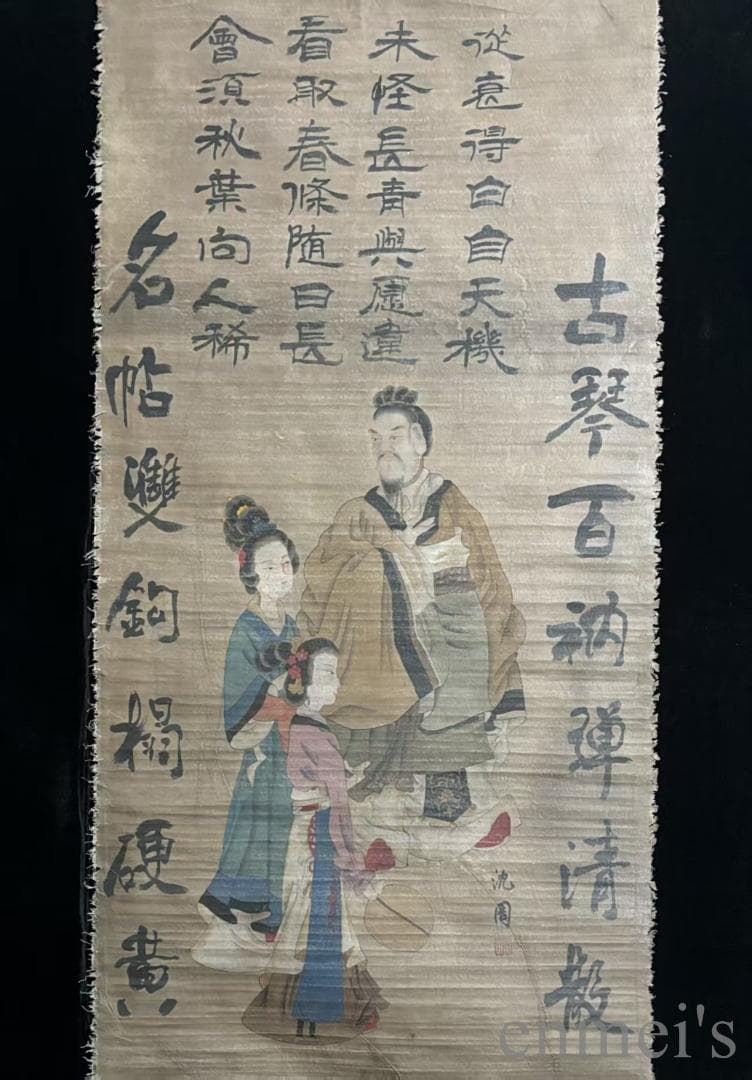 古琴百衲彈清散
從衰得白自天機
未怪長青與愿違
看取春條随日長
會須秋葉向人稀
名帖雙鈎榻硬黄
沈周
enmei's